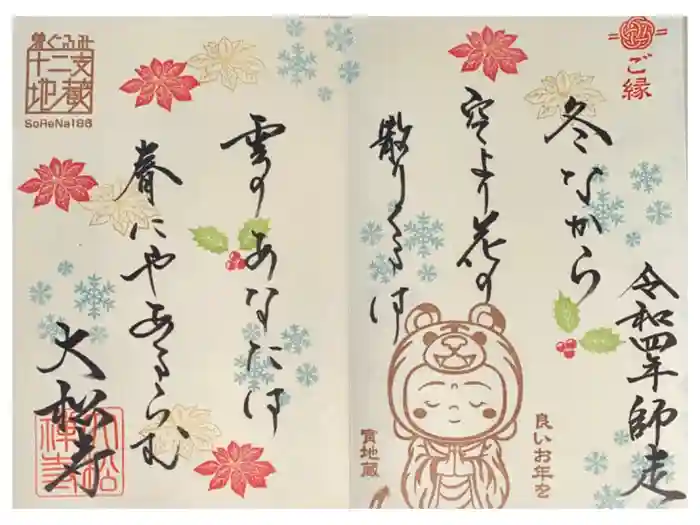 ご縁
令和四年師走
冬なから
空より花の
散りくるは
良いお年を
寅地蔵
雲のあなたは
春にやあるらむ
大松寺
大松禅寺
着ぐるみ
十二支
地蔵
SoReNa188